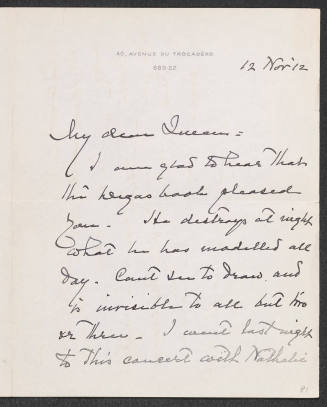 40, AVENUE DU TROCADÉRO
689-22
12 Nov '12
My dear Queen =
I am glad to hear that
this Degas book pleased
you. He destroys at night
what he has modelled all
day. Can't see to draw and
is invisible to all but two
or three. I went last night
to this concert with Nathalie